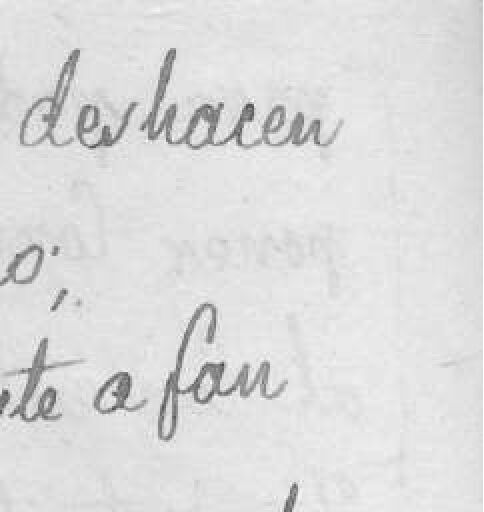 deshacen
o;
te a fan